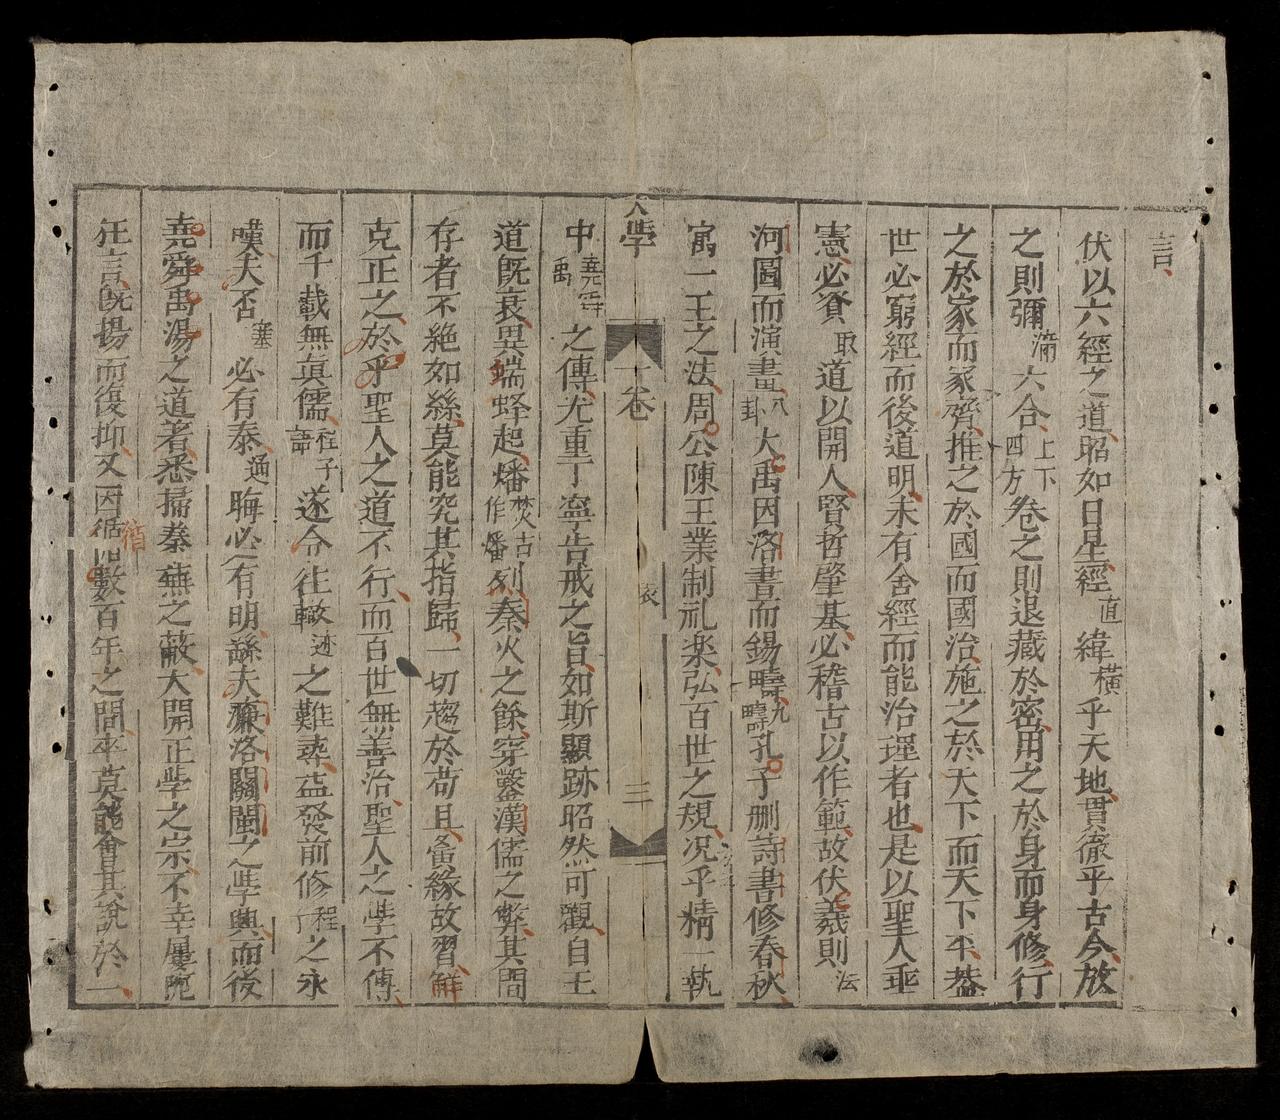 言
伏以六經之道昭如日星經直緯橫乎天地貫徹乎古今放
之則彌滿六合上下四方卷之則退藏於密用之於身而身修行
之於家而家齊推之於國而國治施之於天下而天下平蓋
世必窮經而後道明未有舍經而能治理者也是以聖人垂
憲必資取道以開人賢哲肇基必稽古以作範故伏羲則法
河圖而演畫八卦大禹因洛書而錫疇九疇孔子刪詩書修春秋
寓一王之法周公陳王業制礼楽弘百世之規况乎精一執
大學 一卷 三
中堯舜禹之傳尤重丁寧告戒之旨如斯顯跡昭然可觀自王
道既衰異端蜂起燔焚古作燔列秦火之餘穿鑿漢儒之弊其間
存者不絶如絲莫能究其指歸一切趨於苟且夤緣故習鮮
克正之於乎聖人之道不行而百世無善治聖人之學不傳
而千載無眞儒程子語遂令往轍迹之難尋益發前修程丁之永
嘆夫否塞必有泰通晦必有明繇夫濂洛關閩之學興而後
堯舜禹湯之道著悉掃秦蕪之蔽大開正學之宗不幸屢阨
狂言既揚而復抑又因循循數百年之間卒莫能會其說於一